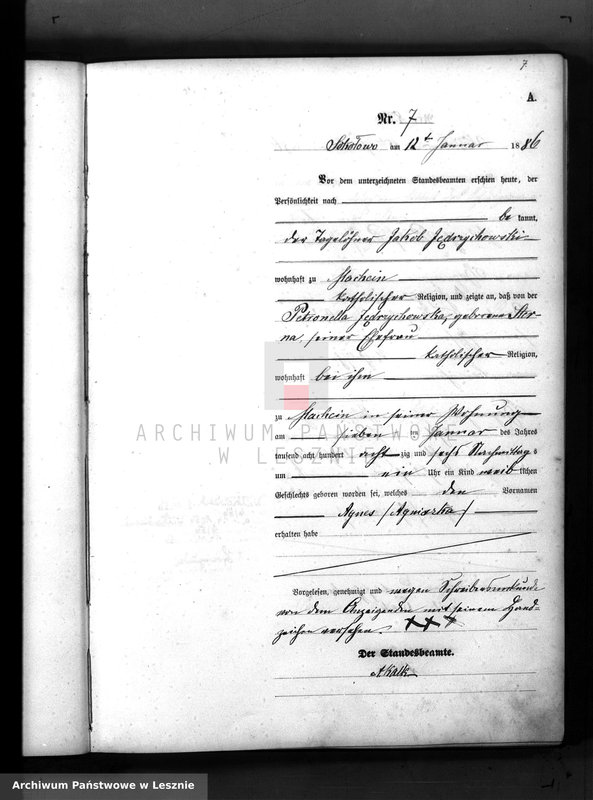 7
A.
Nr. 7
Sokołowo am 12t Januar 1886
Vor dem unterzeichneten Standesbeamten erschien heute, der
Persönlichkeit nach
be kannt,
der Tagelöhner Jakob Jędrzychowski
wohnhaft zu Machcin
katholischer Religion, und zeigte an, daß von der
Petronella Jędrzychowska, geborene Ster-
na, seiner Ehefrau
katholischer Religion,
wohnhaft bei ihm
zu Machcin in seiner Wohnung
am sieben ten Januar des Jahres
tausend acht hundert acht zig und sechs Nachmittags
um ein Uhr ein Kind weib lichen
Geschlechts geboren worden sei, welches den Vornamen
Agnes (Agnieszka)
erhalten habe
Vorgelesen, genehmigt und wegen Schreibensunkunde
von dem Anzeigenden mit seinem Hand-
zeichen versehen. XXX
Der Standesbeamte.
A Kalk
ARCHIWUM PAŃSTWOWE
W LESZNIE
Archiwum Państwowe w Lesznie